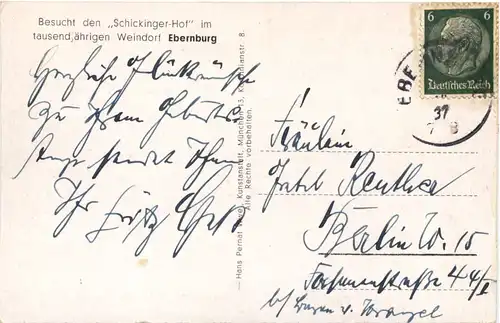 Besucht den „Schickinger-Hof" im
tausendjährigen Weindorf Ebernburg
Herzliche Glückwünsche
zu Ihrem Geburts-
tage sendet Ihnen
Ihr Fritz
— Hans Pernat Kunstanstalt, München 13, 8.
Alle Rechte vorbehalten.
6 6
Deutsches Reich
EBE
37
Fräulein
Reuther
Berlin W. 15
44/I
b/ v.